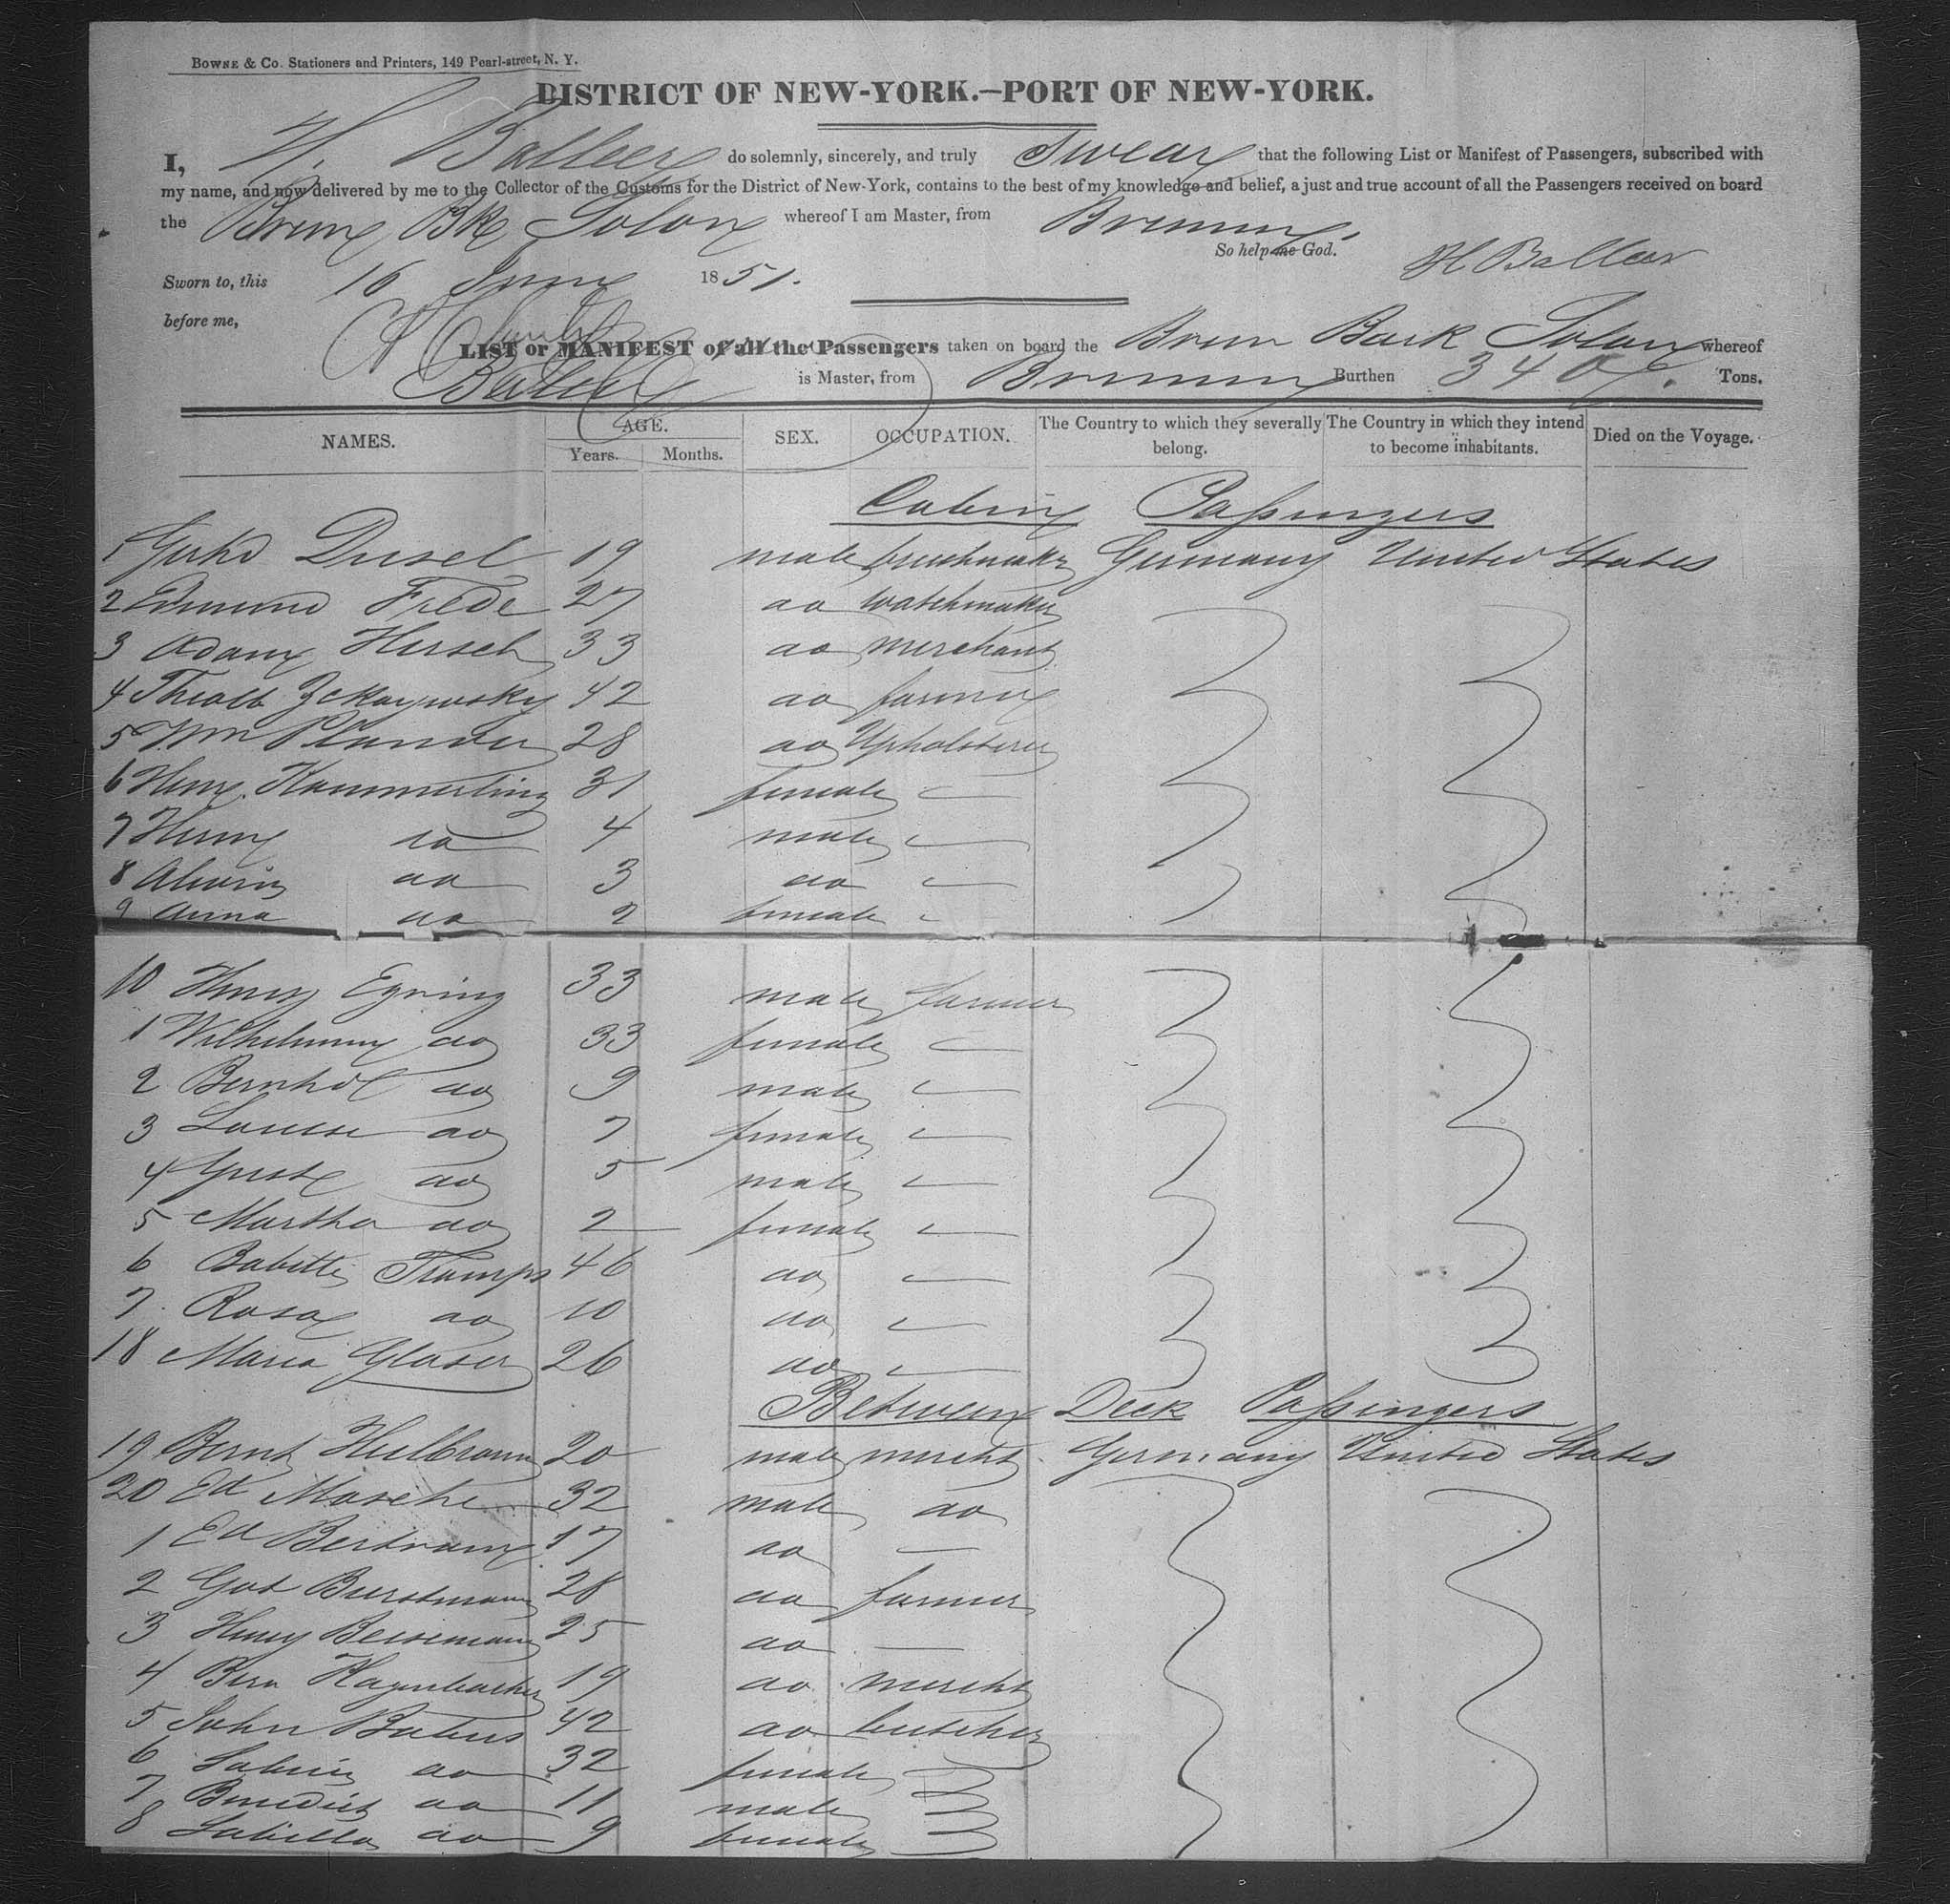 BOWNE & Co. Stationers and Printers, 149 Pearl-street, N. Y.
DISTRICT OF NEW-YORK.—PORT OF NEW-YORK.
I, H. Balleer do solemnly, sincerely, and truly Swear that the following List or Manifest of Passengers, subscribed with
my name, and now delivered by me to the Collector of the Customs for the District of New-York, contains to the best of my knowledge and belief, a just and true account of all the Passengers received on board
the Brem Bk Solon whereof I am Master, from Bremen.
So help me God. H Balleer
Sworn to, this 16 June 1851.
before me,
LIST or MANIFEST of all the Passengers taken on board the Brem Bark Solon whereof
is Master, from Bremen Burthen 340 Tons.
NAMES. AGE. SEX. OCCUPATION. The Country to which they severally belong. The Country in which they intend to become inhabitants. Died on the Voyage.
Years. Months.
Cabin Passengers
1 19 male Germany United States
2 Edmund Frede 27 do watchmaker
3 Adam Hirsch 33 do merchant
4 42 do farmer
5 Wm 28 do Upholsterer
6 Kammerling 31 female —
7 Henry do 4 male —
8 Alwin do 3 do —
9 Anna do 2 female -
10 Henry Eyring 33 male farmer
1 Wilhelmine do 33 female —
2 Bernhd do 9 male —
3 Louise do 7 female —
4 Gust do 5 male —
5 Martha do 2 female —
6 Babette 46 do —
7 Rosa do 10 do —
18 Maria Glaser 26 do —
Between Deck Passengers
19 Bernh Heilbronn 20 male mercht Germany United States
20 Ed Masche 32 male do
1 Ed Bertram 17 do —
2 28 do farmer
3 Henry 25 do —
4 19 do mercht
5 John 42 do butcher
6 Sabin do 32 female
7 Benedict do 11 male
8 do 9 female